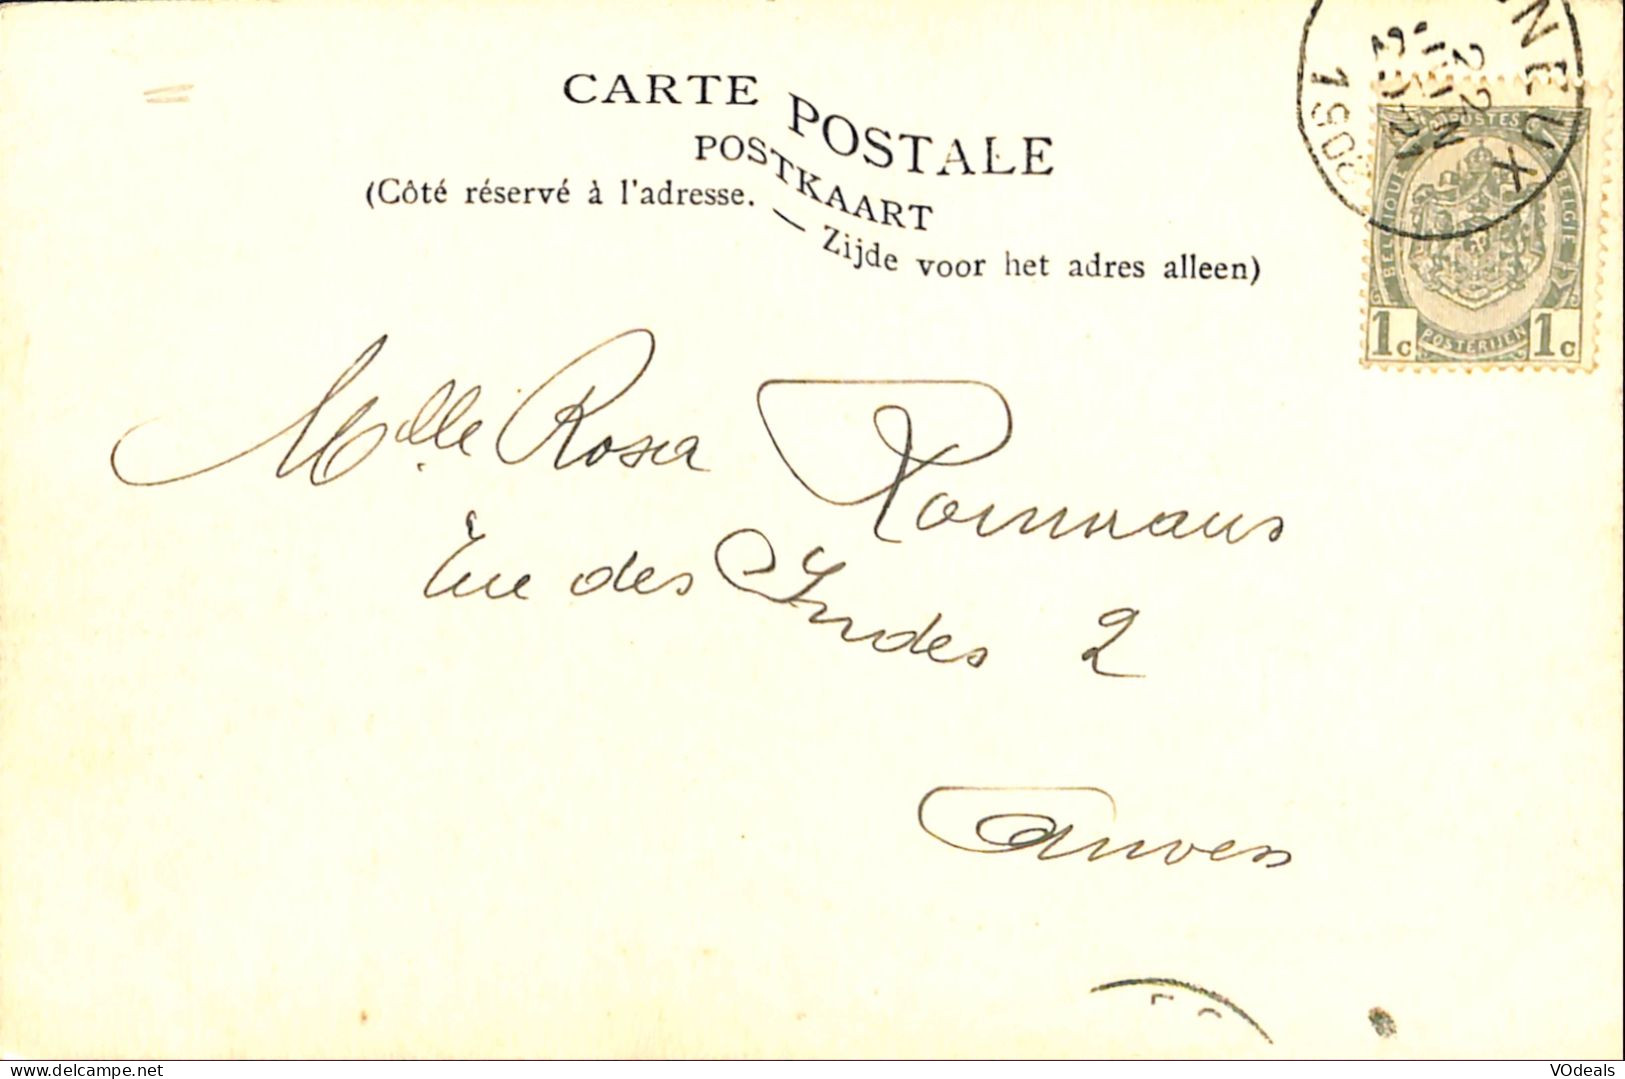 CARTE POSTALE
POSTKAART
(Côté réservé à l'adresse. — Zijde voor het adres alleen)
NEUX
22
JUIN
1908
BELGIQUE POSTES BELGIE
POSTERIJEN
1c 1c
Melle Rosa
rue des Indes 2
Anvers
delcampe.net
VOdeals